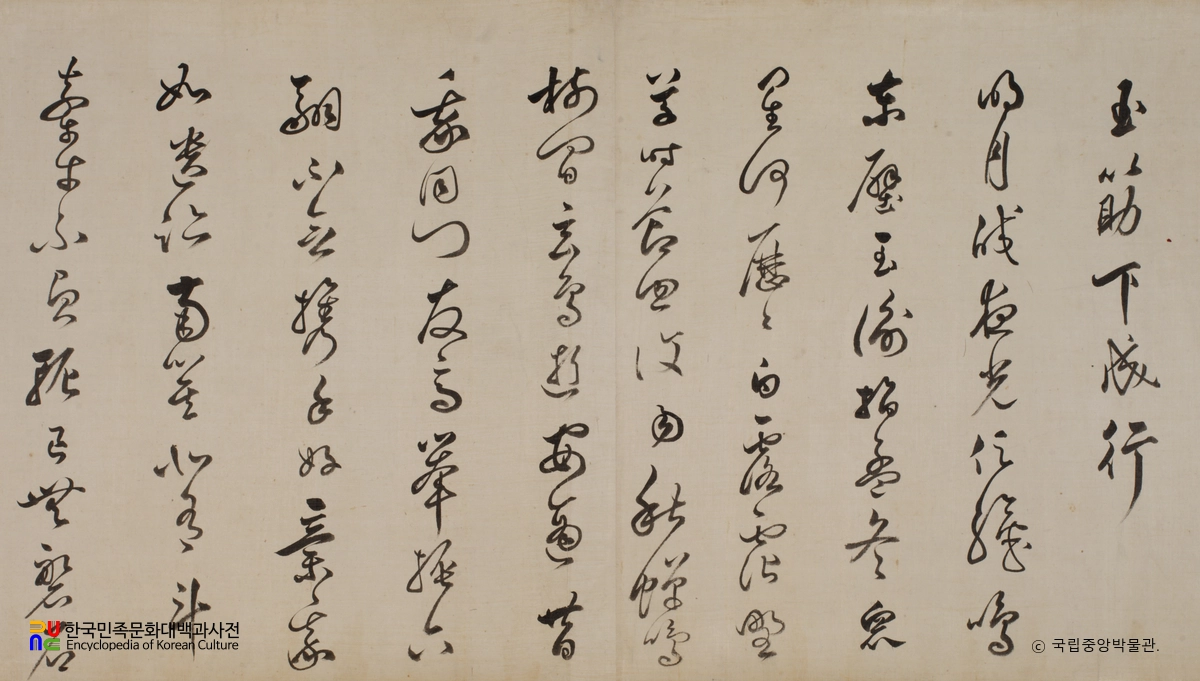 玉筯下成行
明月皎夜光促織鳴
東壁玉衡指孟冬衆
星何歷々白露霑野
草時節忽復易秋蟬鳴
樹間玄鳥逝安適昔
我同門友高舉振六
翮不念攜手好棄我
如遺跡南箕北有斗
牽牛不負軛良無磐石
한국민족문화대백과사전
Encyclopedia of Korean Culture
ⓒ 국립중앙박물관.